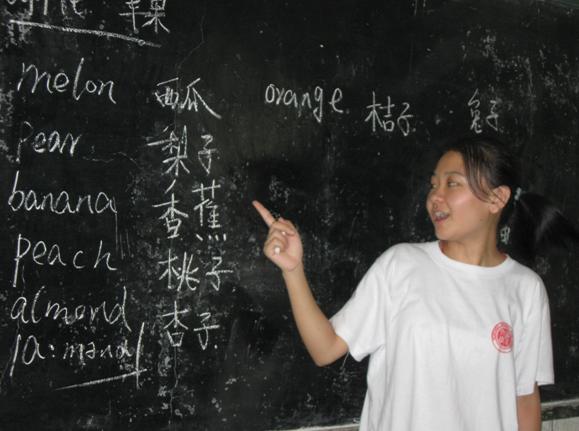 apple 苹果
melon 西瓜 orange 桔子 兔子
pear 梨子
banana 香蕉
peach 桃子
almond 杏子
/a:mənd/